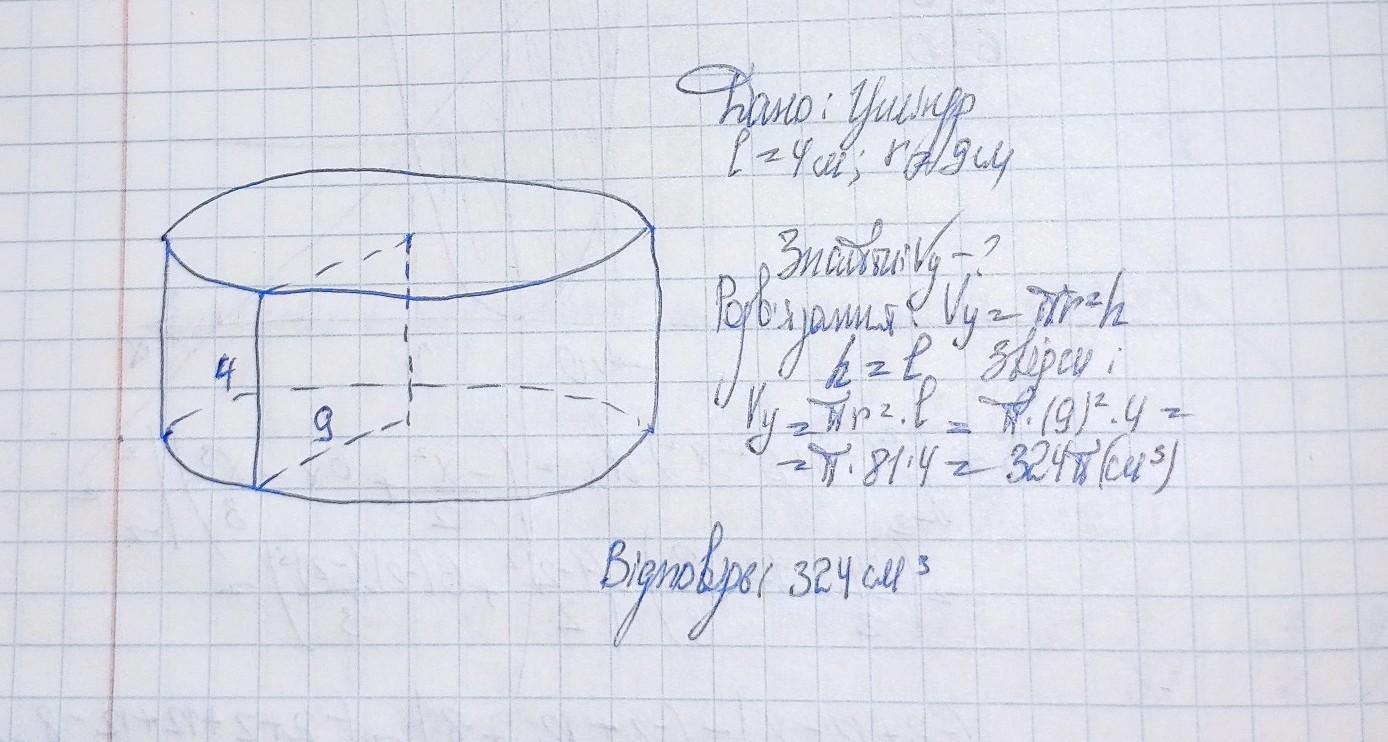 Дано: Циліндр
l = 4 см; r = 9 см
Знайти: Vц - ?
Розв'язання: Vц = πr²h
h = l Звідси:
Vц = πr²·l = π·(9)²·4 =
= π·81·4 = 324π(см³)
4
9
Відповідь: 324 см³